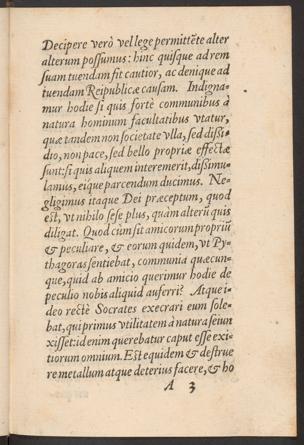 Decipere verò vel lege permittẽte alter
alterum possumus: hinc quisque ad rem
suam tuendam fit cautior, ac denique ad
tuendam Reipublicæ causam. Indigna-
mur hodie si quis fortè communibus à
natura hominum facultatibus vtatur,
quæ tandem non societate vlla, sed dissi-
dio, non pace, sed bello propriæ effectæ
sunt: si quis aliquem interemerit, dissimu-
lamus, eique parcendum ducimus. Ne-
gligimus itaque Dei præceptum, quod
est, vt nihilo sese plus, quàm alterũ quis
diligat. Quod cùm sit amicorum propriũ
& peculiare, & eorum quidem, vt Py-
thagoras sentiebat, communia quæcun-
que, quid ab amicio querimur hodie de
peculio nobis aliquid auferri? Atque i-
deo rectè Socrates execrari eum sole-
bat, qui primus vtilitatem à natura seiun
xisset: id enim querebatur caput esse exi-
tiorum omnium. Est equidem & destrue
re metallum atque deterius facere, & ho
A 3